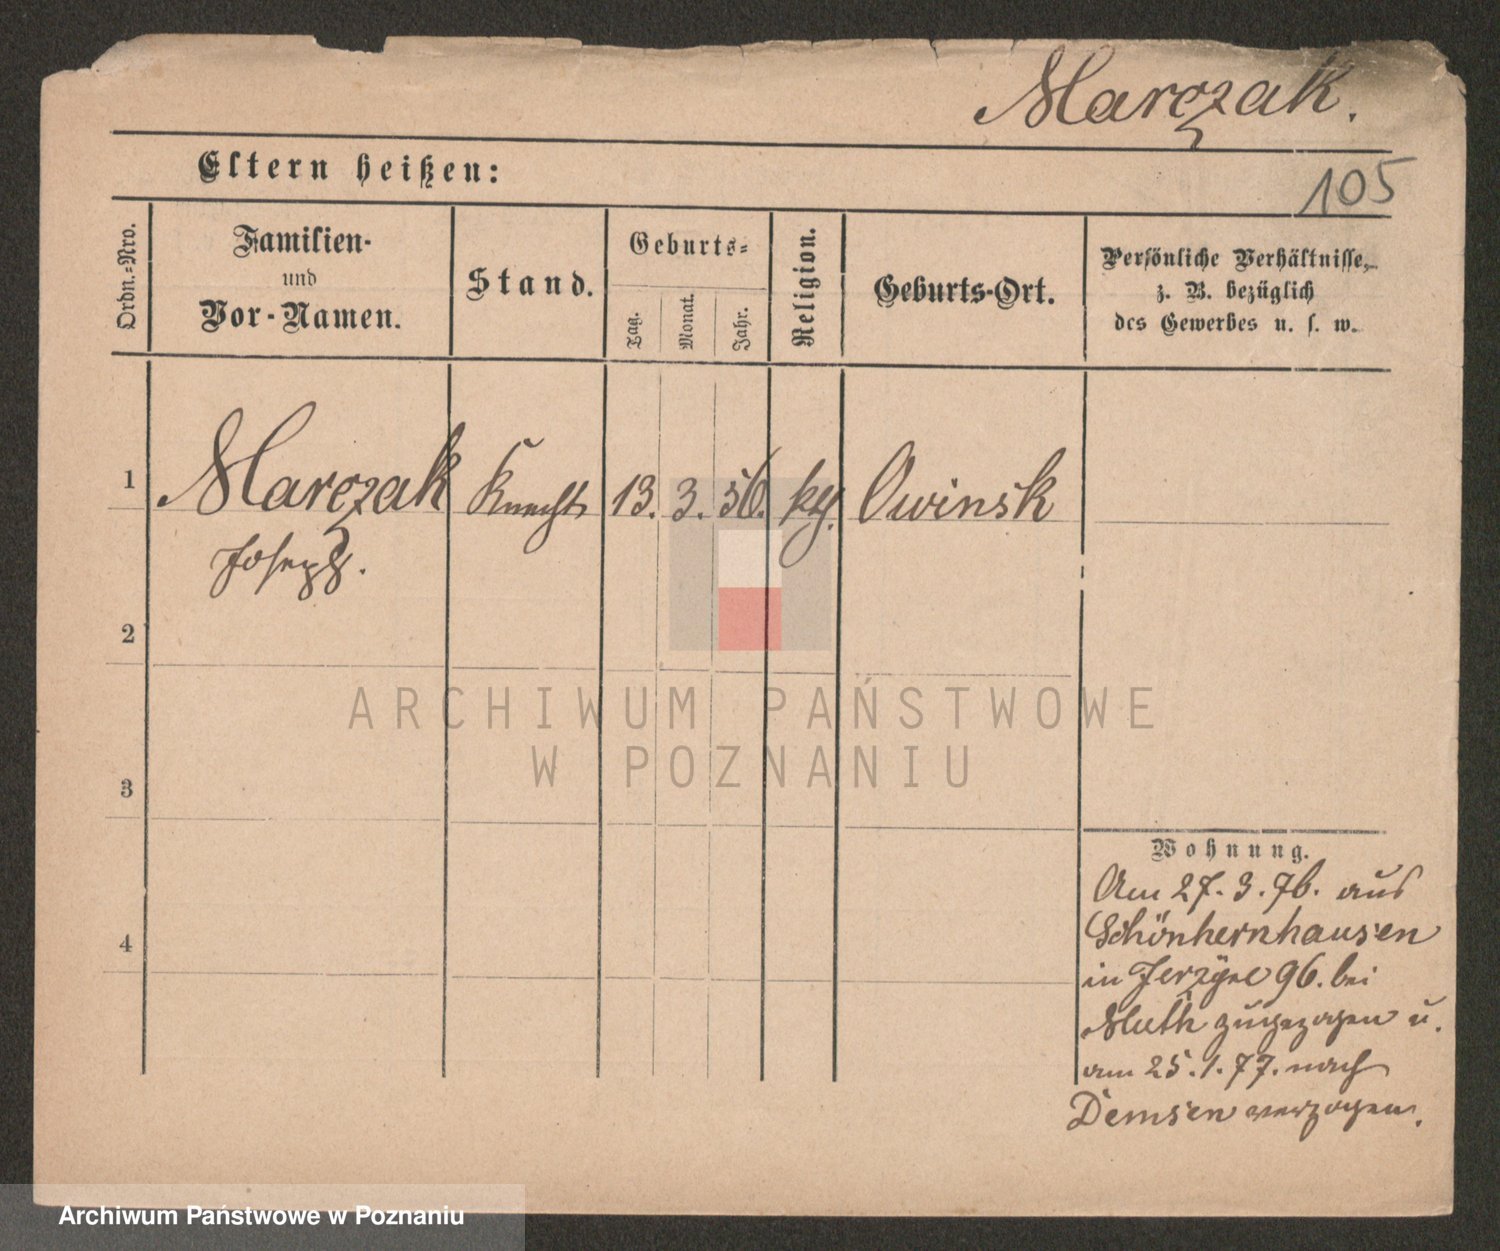 Marczak.
105
Eltern heißen:
Ordn.-Nro.
Familien-
und
Vor-Namen.
Stand.
Geburts-
Tag.
Monat.
Jahr.
Religion.
Geburts-Ort.
Persönliche Verhältnisse,
z. B. bezüglich
des Gewerbes u. s. w.
1 Marczak Knecht 13. 3. 56. kth. Owinsk
Joseph.
2
3
4
Wohnung.
Am 27.3.76. aus
Schönhernhausen
in Jerzyce 96. bei
Muth zugezogen u.
am 25.1.77. nach
Demsen verzogen.
ARCHIWUM PAŃSTWOWE
W POZNANIU
Archiwum Państwowe w Poznaniu